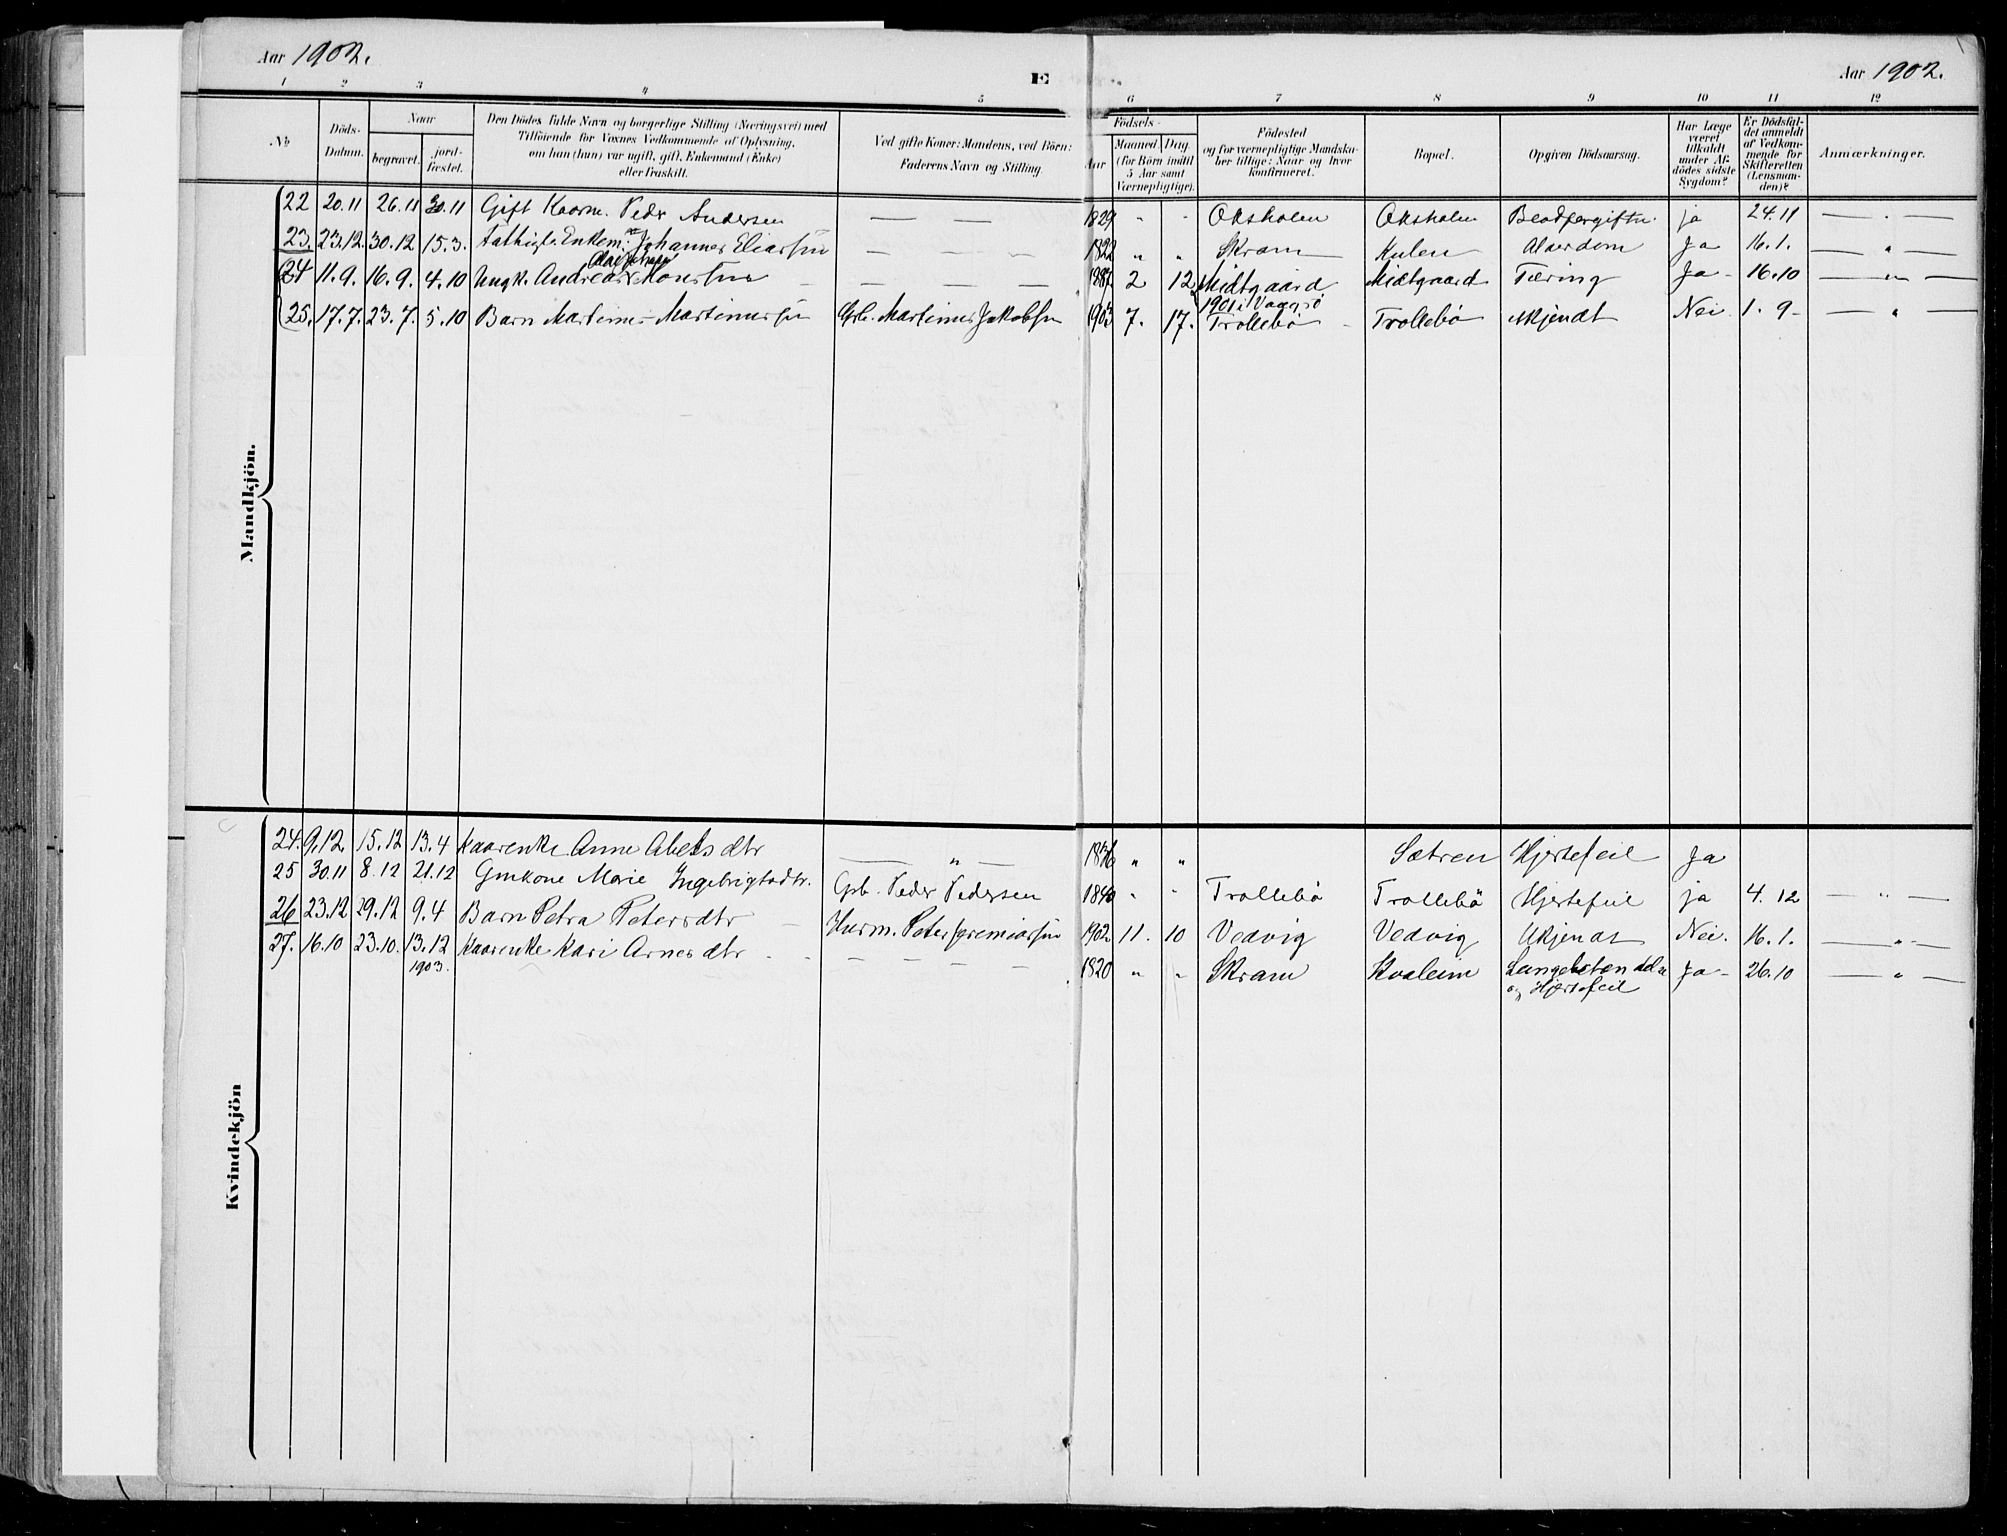 Aar 1902.
E
Aar 1902.
1 2 3 4 5 6 7 8 9 10 11 12
No
Döds-
Datum.
Naar
begravet.
jord-
fæstet.
Den Dödes fulde Navn og borgerlige Stilling (Næringsvei) med
Tilföiende for Voxnes Vedkommende af Oplysning,
om han (hun) var ugift, gift, Enkemand (Enke)
eller fraskilt.
Ved gifte Koner: Mandens, ved Börn:
Faderens Navn og Stilling
Födsels-
Aar
Maaned
(for Börn indtil
5 Aar samt
Værnepligtige).
Dag
Födested
og for værnepligtige Mandska-
ber tillige: Naar og hvor
konfirmeret.
Bopæl.
Opgiven Dödsaarsag.
Har Læge
været
tilkaldt
under Af-
dödes sidste
Sygdom?
Er Dödsfal-
det anmeldt
af Vedkom-
mende for
Skifteretten
(Lensman-
den)?
Anmærkninger.
Mandkjön.
22 20.11 26.11 30.11 Gift Kaarm. Peder Andersen — — 1829 " " Oksholen Oksholen Blodforgiftn. ja 24.11 — " —
23. 23.12. 30.12 15.3. Fathigle. Enkem. Johannes Eliassen — — — 1822 " " Skram Kulen Alderdom Ja 16.1. — " —
24 11.9. 16.9. 4.10 Ungk. Andreas Monsen — — — 1887 2 12 Midtgaard Midtgaard Tæring Ja 16.10 — " —
1901 i Vaagsö
25. 17.7. 23.7. 5.10 Barn Martinus Martinussen Grb. Martinus Jakobsen 1902 7. 17. Trollebö Trollebö Ukjendt Nei 1.9 — " —
Kvindekjön
24. 9.12. 15.12 13.4 Kaarenke Anne Abelsdtr — " — 1836 " " Sætren Hjertefeil Ja
25 30.11 8.12 21.12 Gmkone Marie Ingebrigtsdtr. Grb. Peder Pedersen 1840 " " Trollebö Trollebö Hjertefeil ja 4.12 — " —
26 23.12 29.12 9.4 Barn Petra Petersdtr Husm. Peter Jeremiassen 1902 11. 10 Vedvig Vedvig Ukjendt Nei. 16.1. — " —
27. 16.10 23.10. 13.12 Kaarenke Kari Arnesdtr — — — — 1820 " " Skram Kvaleim Lungebetændelse Ja 26.10 — " —
1903. og Hjertefeil